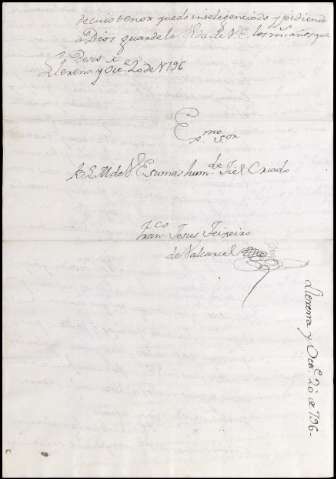 de cuio tenor quedo inteligenciado y pidiendo
a Dios guarde la Vida de V.E. los m.s años que
Deseo
Llerena y Oct.e 20 de 1796
Exc.mo S.or
A L M de V.E. su mas hum.de y fiel Criado
Fran.co Jesus Teixeiro
de Valcarcel
Llerena y Oct.e 20 de 796